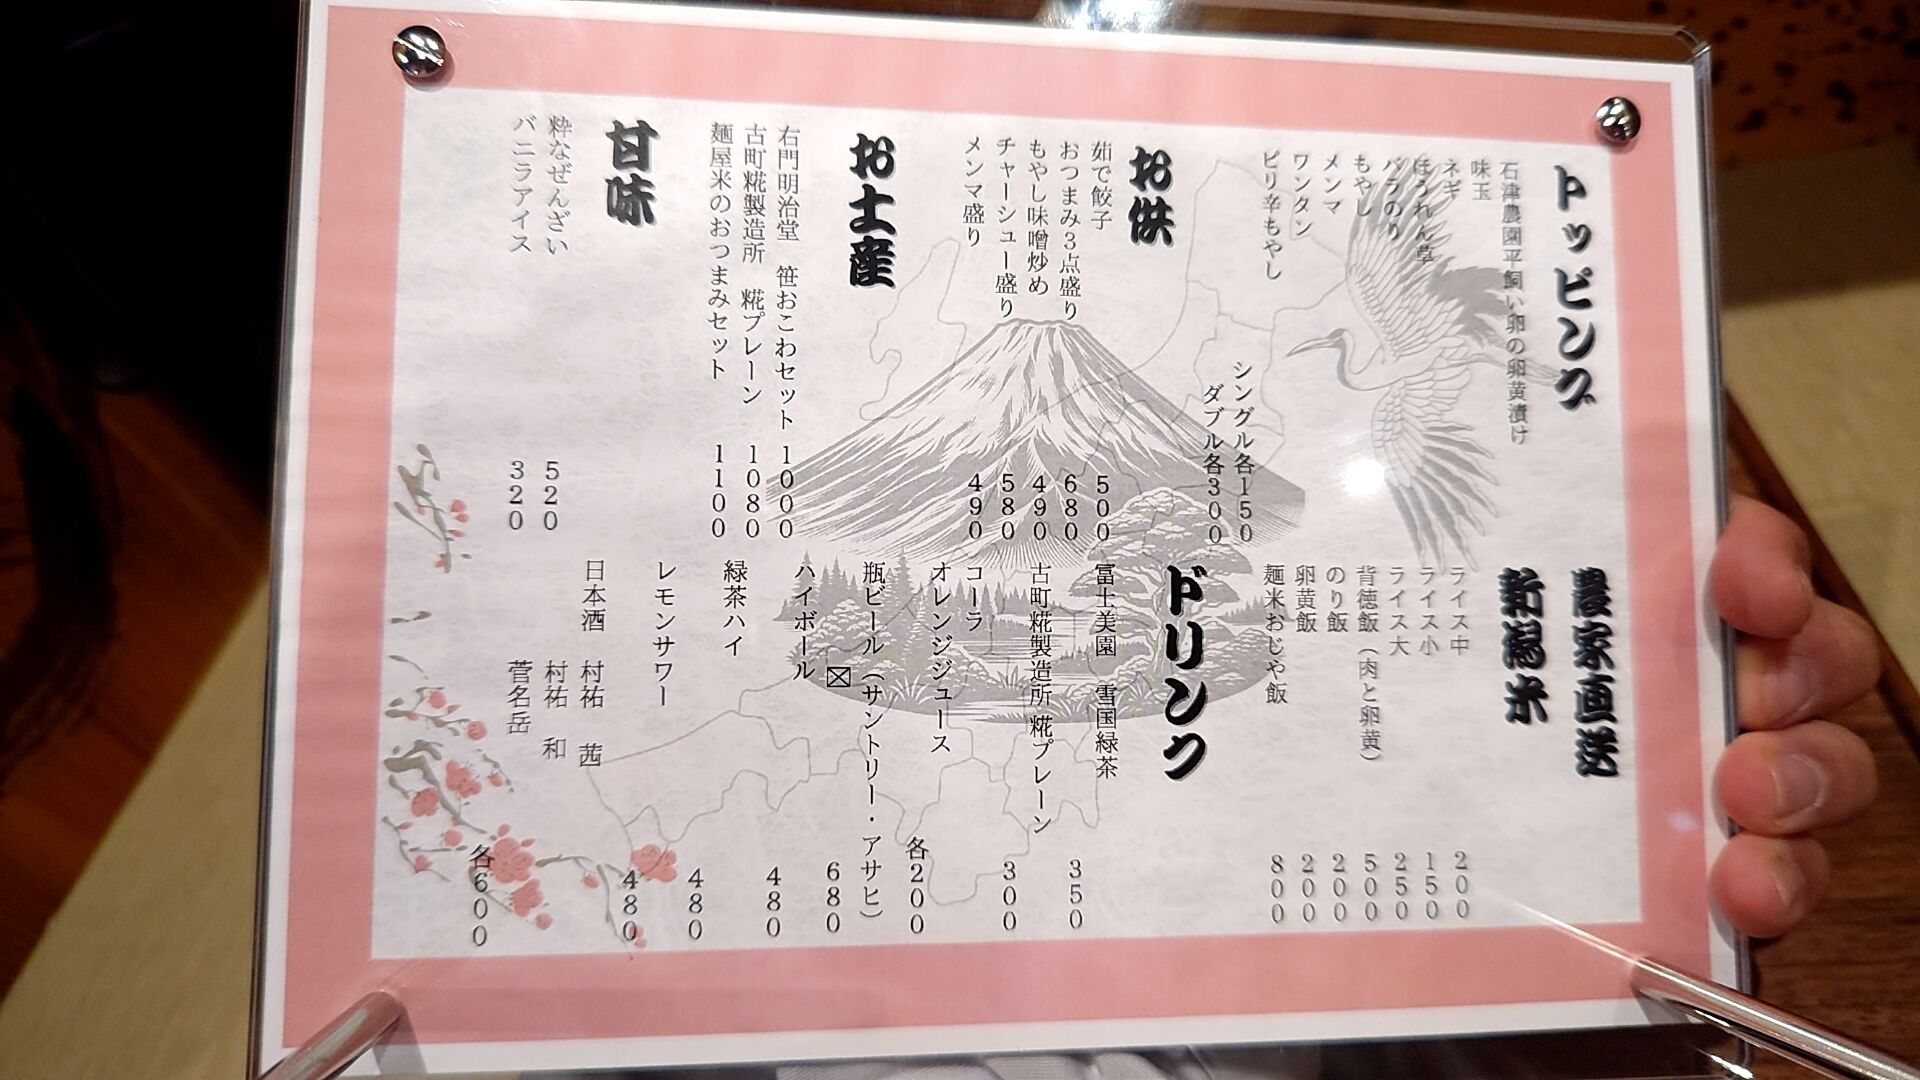 トッピング
石津農園平飼い卵の卵黄漬け
味玉
ネギ
ほうれん草
バラのり
もやし
メンマ
ワンタン
ピリ辛もやし
シングル各150
ダブル各300
お供
茹で餃子 500
おつまみ3点盛り 680
もやし味噌炒め 490
チャーシュー盛り 580
メンマ盛り 490
お土産
右門明治堂 笹おこわセット 1000
古町糀製造所 糀プレーン 1080
麺屋米のおつまみセット 1100
甘味
粋なぜんざい 520
バニラアイス 320
農家直送
新潟米
ライス中 200
ライス小 150
ライス大 250
背徳飯（肉と卵黄） 500
のり飯 200
卵黄飯 200
麺米おじや飯 800
ドリンク
冨士美園 雪国緑茶 350
古町糀製造所 糀プレーン 300
コーラ
オレンジジュース 各200
瓶ビール（サントリー・アサヒ） 680
ハイボール 480
緑茶ハイ 480
レモンサワー 480
日本酒 村祐 茜
村祐 和
菅名岳 各600